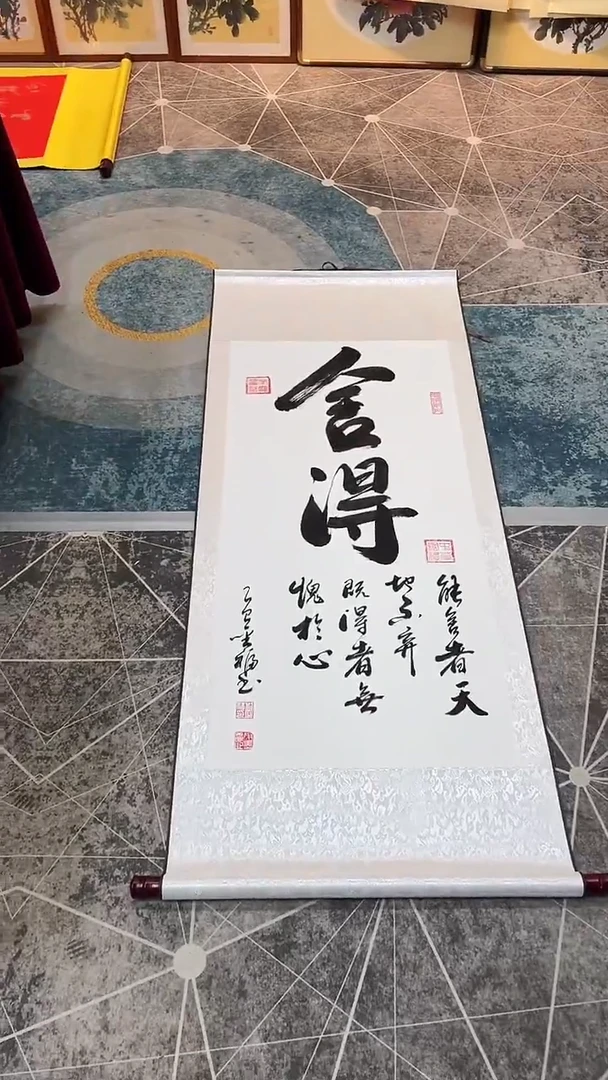 舍得
能舍者天
地不弃
既得者無
愧於心